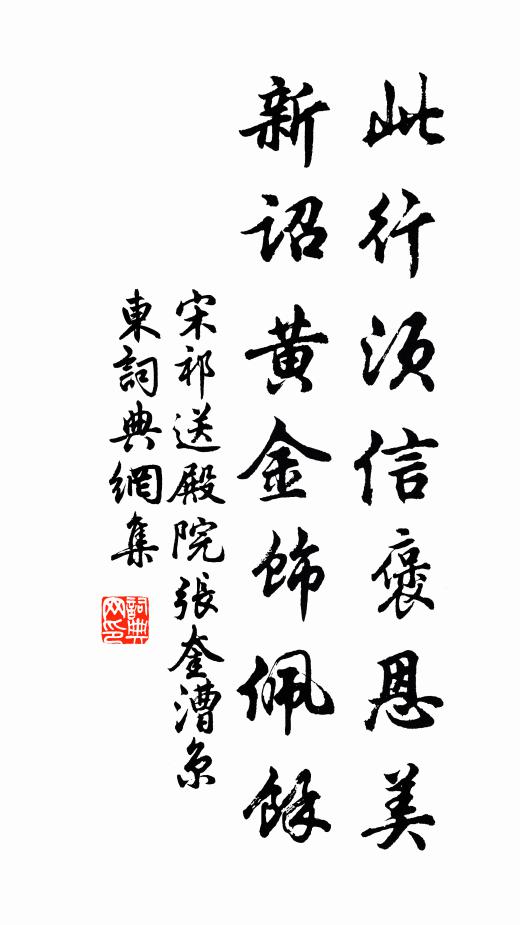 此行須信褒恩美
新詔黃金飾佩餘
宋祁送殿院張奎漕京
東詞典網集
詞典
网印